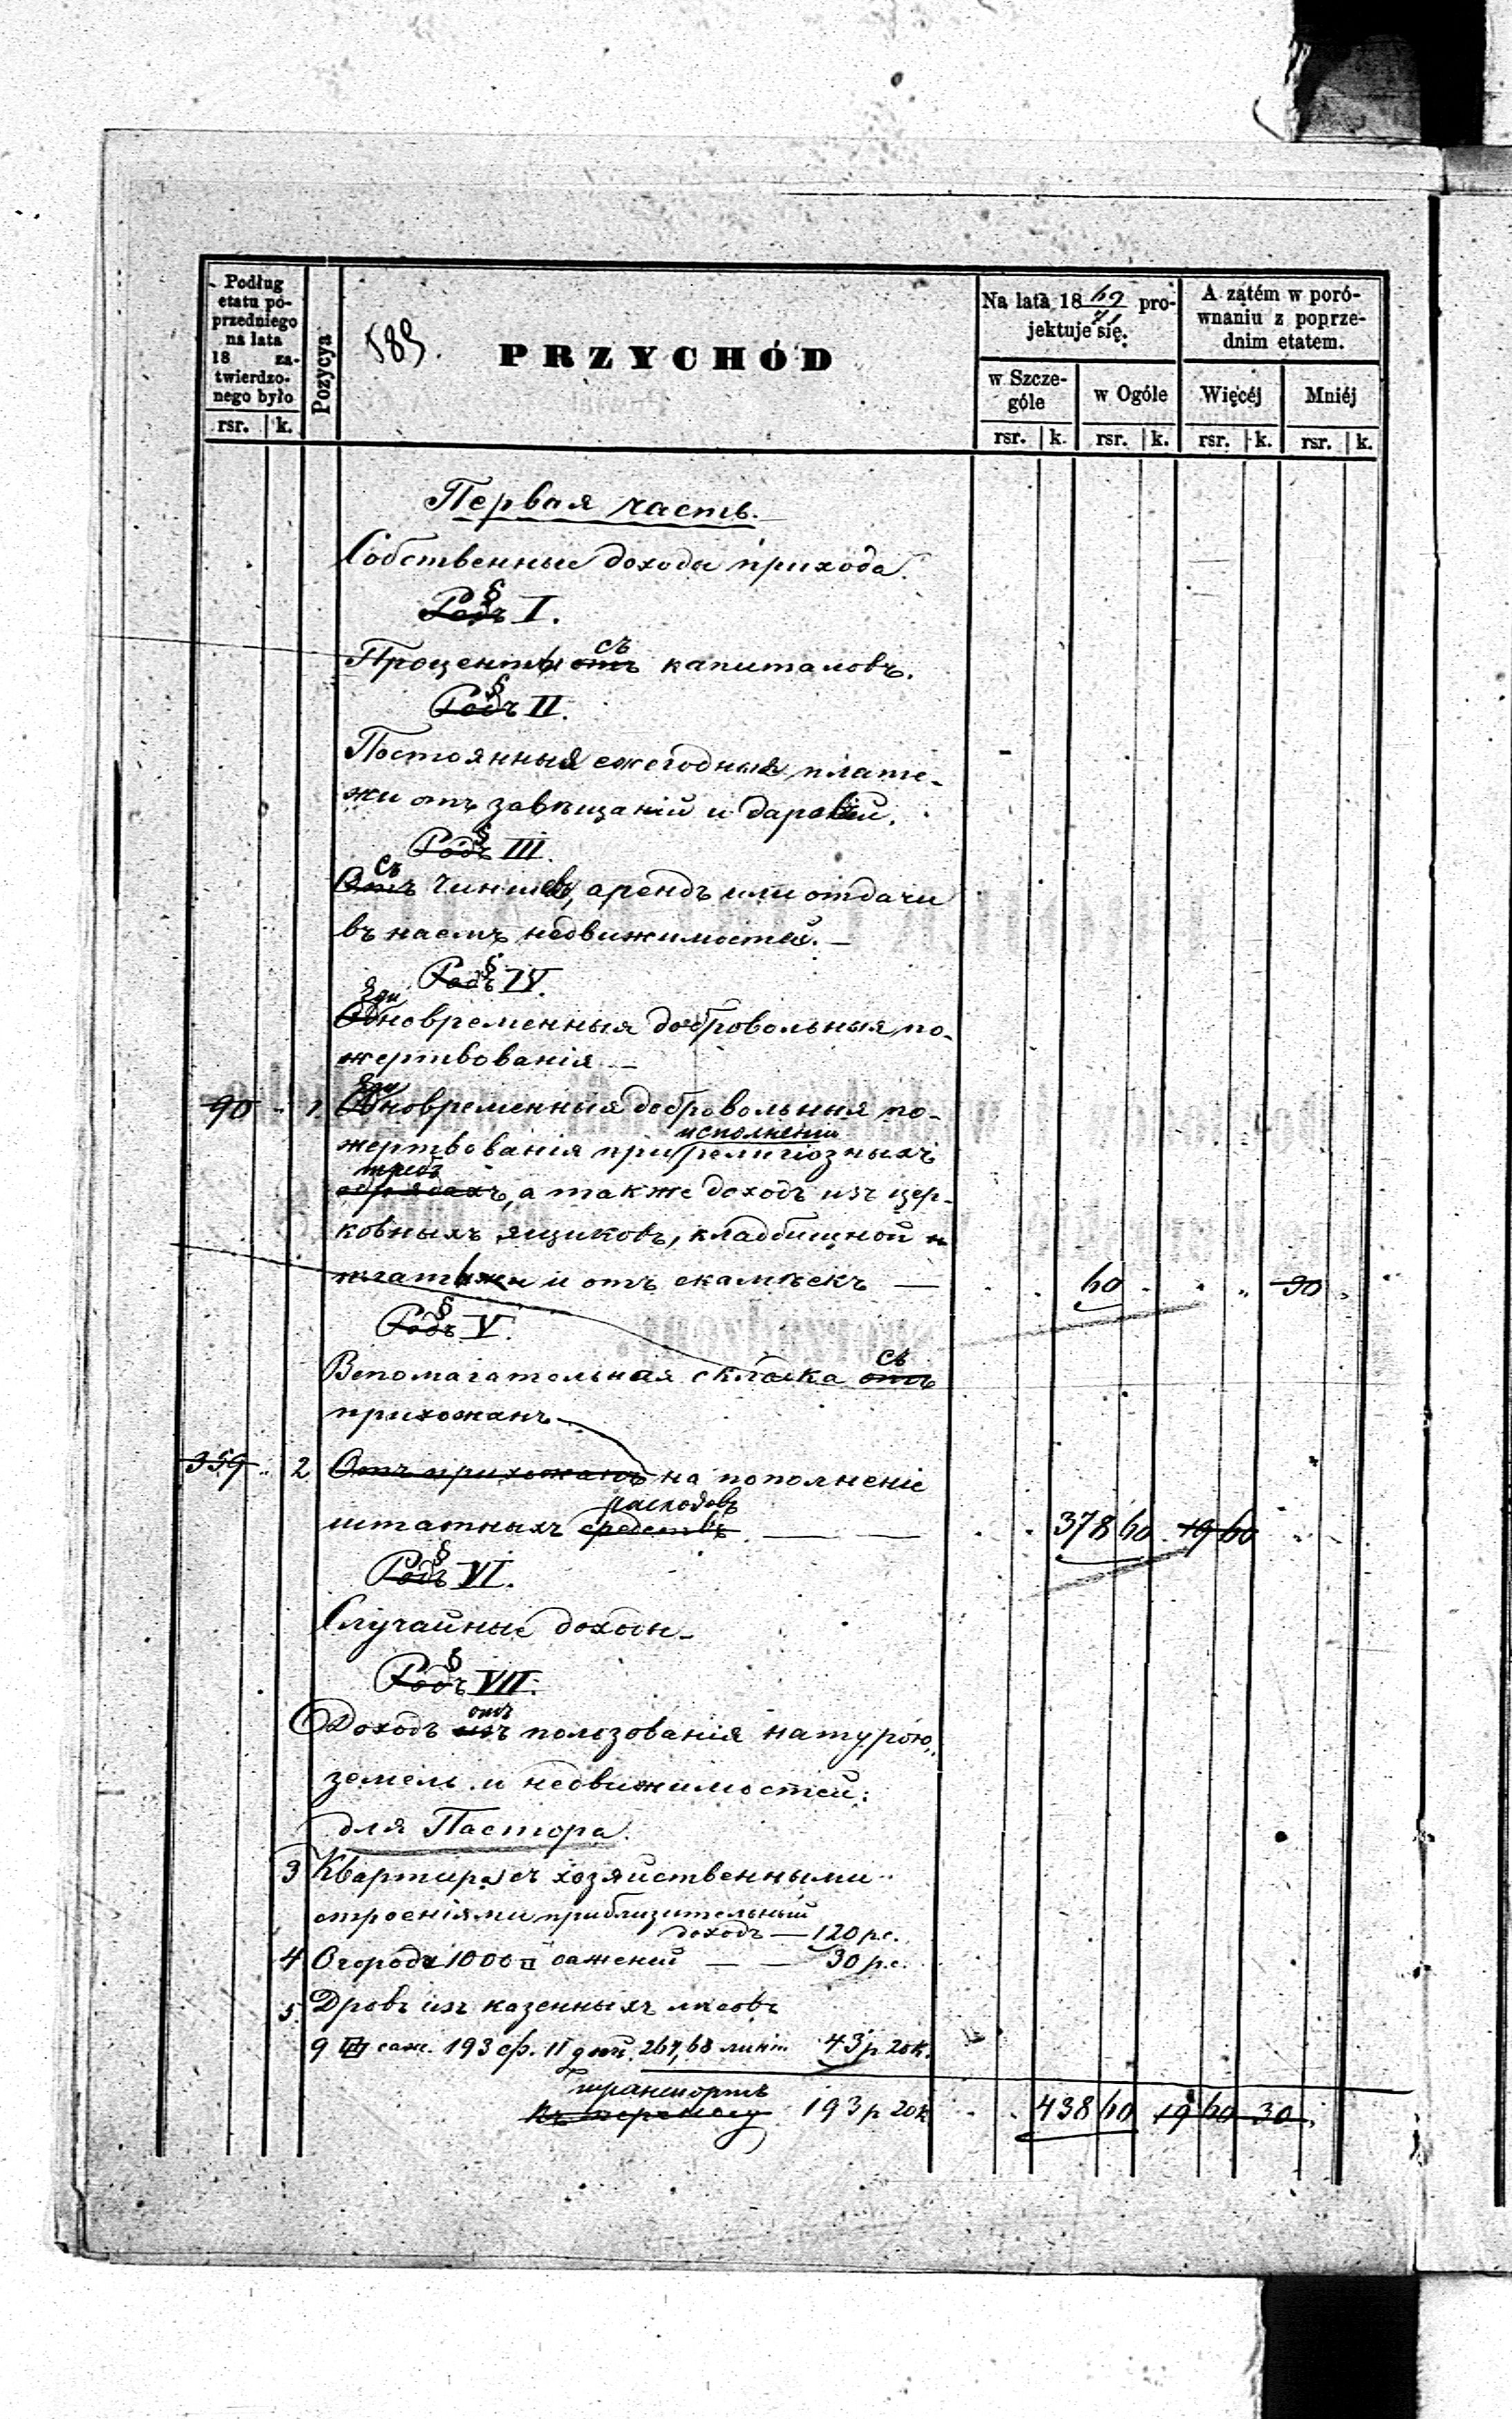 Podług
etatu po-
przedniego
na lata
18 za-
twierdzo-
nego było
rsr. k.
Pozycya
589.
PRZYCHÓD
Na lata 18 69/71 pro-
jektuje się.
w Szcze-
góle
w Ogóle
rsr. k. rsr. k.
A zatém w poró-
wnaniu z poprze-
dnim etatem.
Więcéj Mniéj
rsr. k. rsr. k.
Первая часть.
Собственные доходы прихода.
§
Родъ I.
съ
Проценты отъ капиталовъ.
§
Родъ II.
Постоянныя ежегодныя плате-
жи отъ завѣщаній и
§
Родъ III.
съ
Отъ Чиншев, арендъ или отдачи
въ наемъ недвижимостей.—
§
Родъ IV.
Еди
Одновременныя добровольныя по-
жертвованія —
Еди
90 - 1 Одновременныя добровольныя по-
исполненіи
жертвованія при религіозныхъ
требъ
обрядахъ, а также доходъ изъ цер-
ковныхъ ящиковъ, кладбищной и
и отъ скамѣекъ — 60 30
§
Родъ V.
съ
Вспомагательная складка отъ
прихожанъ
359 2 Отъ прихожанъ на пополненіе
расходовъ
штатныхъ средствъ — — 378 60 19 60
§
Родъ VI.
Случайные доходы—
§
Родъ VII.
отъ
Доходъ изъ пользованія натурою
земель и недвижимостей:
для Пастора.
3 Квартира съ хозяйственными
строеніями приблизительный
доходъ — 120 рс.
4 Огородъ 1000 □ саженей — — 30 р.с.
5. Дровъ изъ казенныхъ лѣсовъ
9 саж. 193 ф. 11 дюй. 267,68 линій 43 р 20 к.
транспортъ
Къ переносу 193 р 20 к 438 60 19 60 30